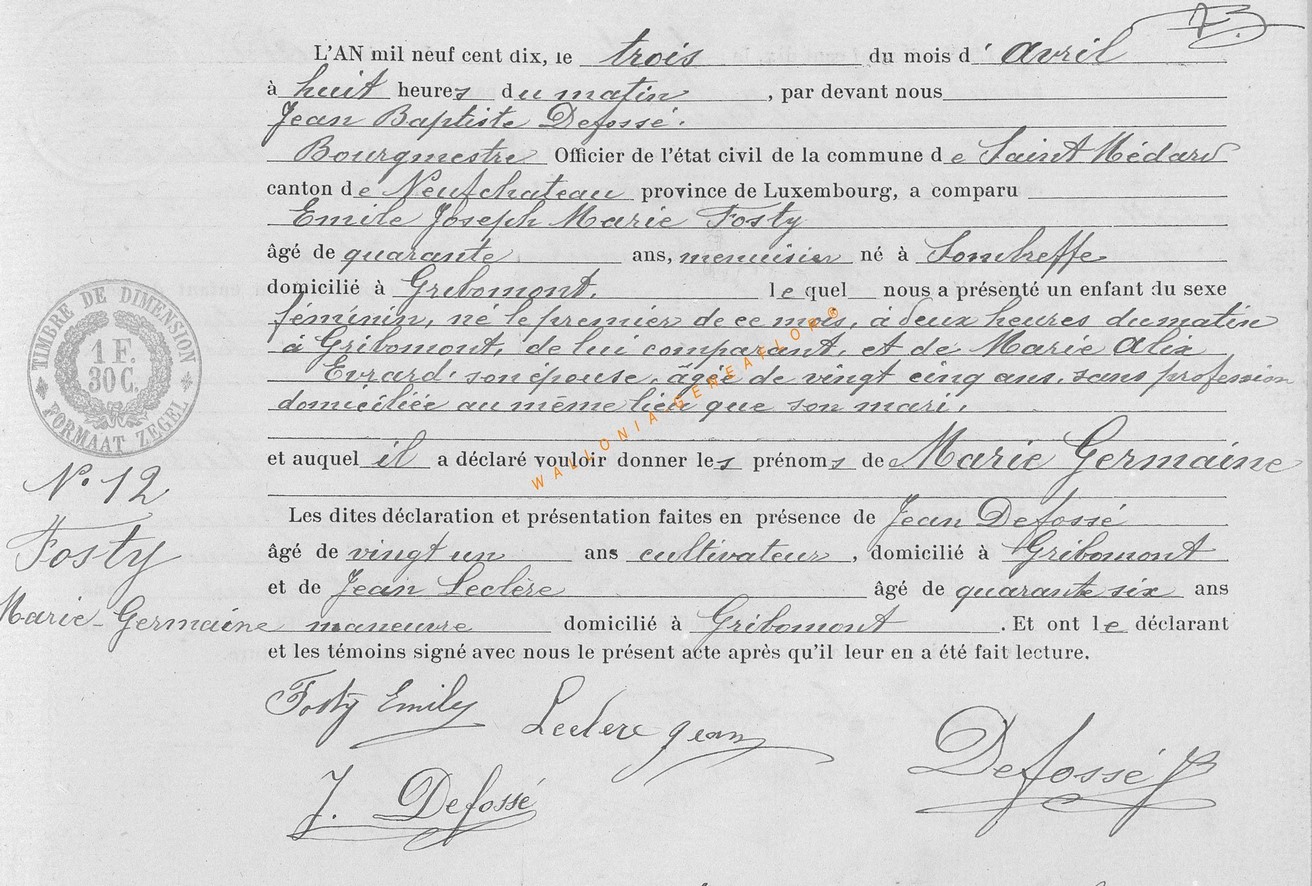 L'AN mil neuf cent dix, le trois du mois d' avril
à huit heures du matin, par devant nous
Jean Baptiste Defossé.
Bourgmestre Officier de l'état civil de la commune de Saint Médard
canton de Neufchateau province de Luxembourg, a comparu
Emile Joseph Marie Fosty
âgé de quarante ans, menuisier né à Sombreffe
domicilié à Gribomont. lequel nous a présenté un enfant du sexe
féminin, né le premier de ce mois, à deux heures du matin
à Gribomont, de lui comparant, et de Marie Alix
Evrard son épouse, âgée de vingt cinq ans, sans profession
domiciliée au même lieu que son mari.
et auquel il a déclaré vouloir donner les prénoms de Marie Germaine
Les dites déclaration et présentation faites en présence de Jean Defossé
âgé de vingt un ans cultivateur, domicilié à Gribomont
et de Jean Leclère âgé de quarante six ans
maneuvre domicilié à Gribomont. Et ont le déclarant
et les témoins signé avec nous le présent acte après qu'il leur en a été fait lecture.
TIMBRE DE DIMENSION
1 F.
30 C.
FORMAAT ZEGEL
N° 12
Fosty
Marie-Germaine
WALLONIA GENEAFLOR®
Fosty Emily
Leclere Jean
J. Defossé
Defossé JB